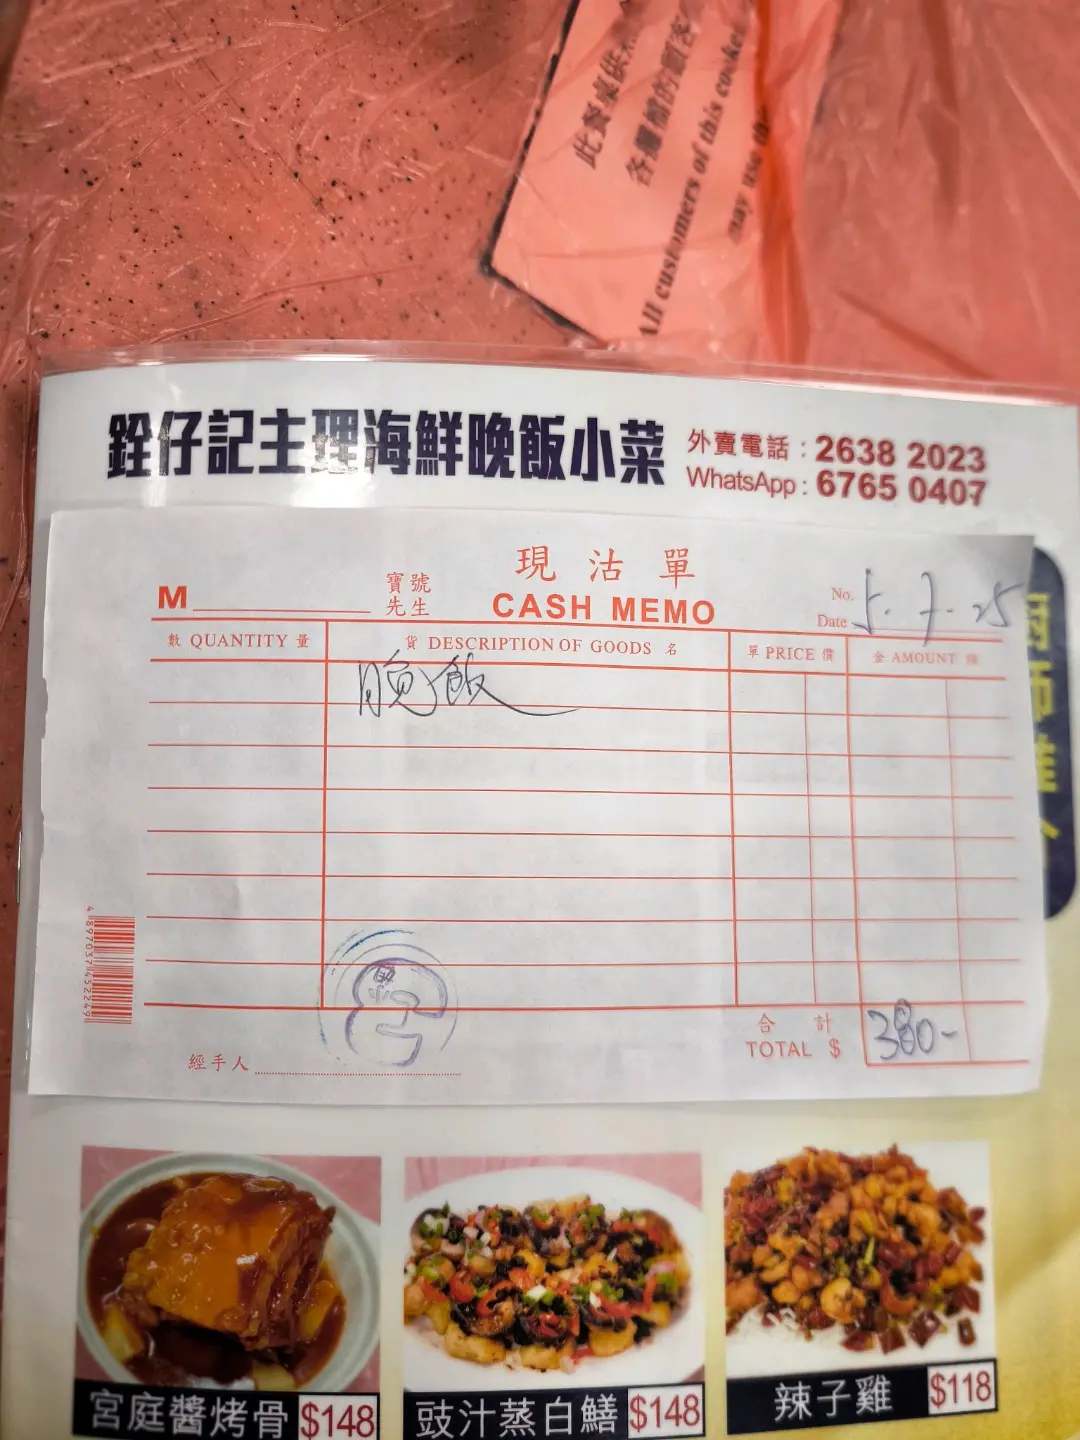 此餐桌供
各攤檔的顧客
All customers of this cooke
may use th
銓仔記主理海鮮晚飯小菜
外賣電話：2638 2023
WhatsApp : 6765 0407
現沽單
CASH MEMO
M
寶號
先生
No.
Date 5.7.25
數 QUANTITY 量
貨 DESCRIPTION OF GOODS 名
單 PRICE 價
金 AMOUNT 額
晚飯
4 897037 452249
合計
TOTAL $
380-
經手人
宮庭醬烤骨 $148
豉汁蒸白鱔 $148
辣子雞 $118